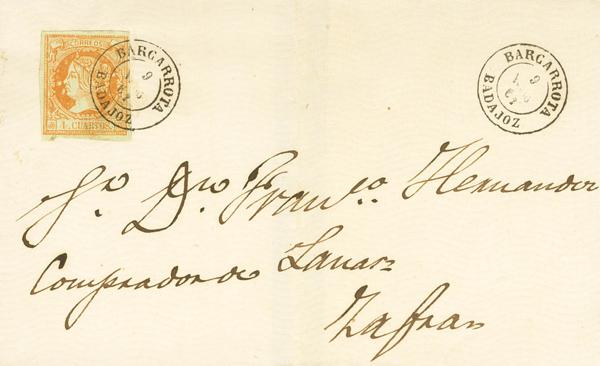 CORREOS
4 CUARTOS
BARCARROTA
9
62
BADAJOZ
BARCARROTA
9
62
BADAJOZ
Sr. Dn. Franco. Hernandez
Comprador de Lanas
Zafra